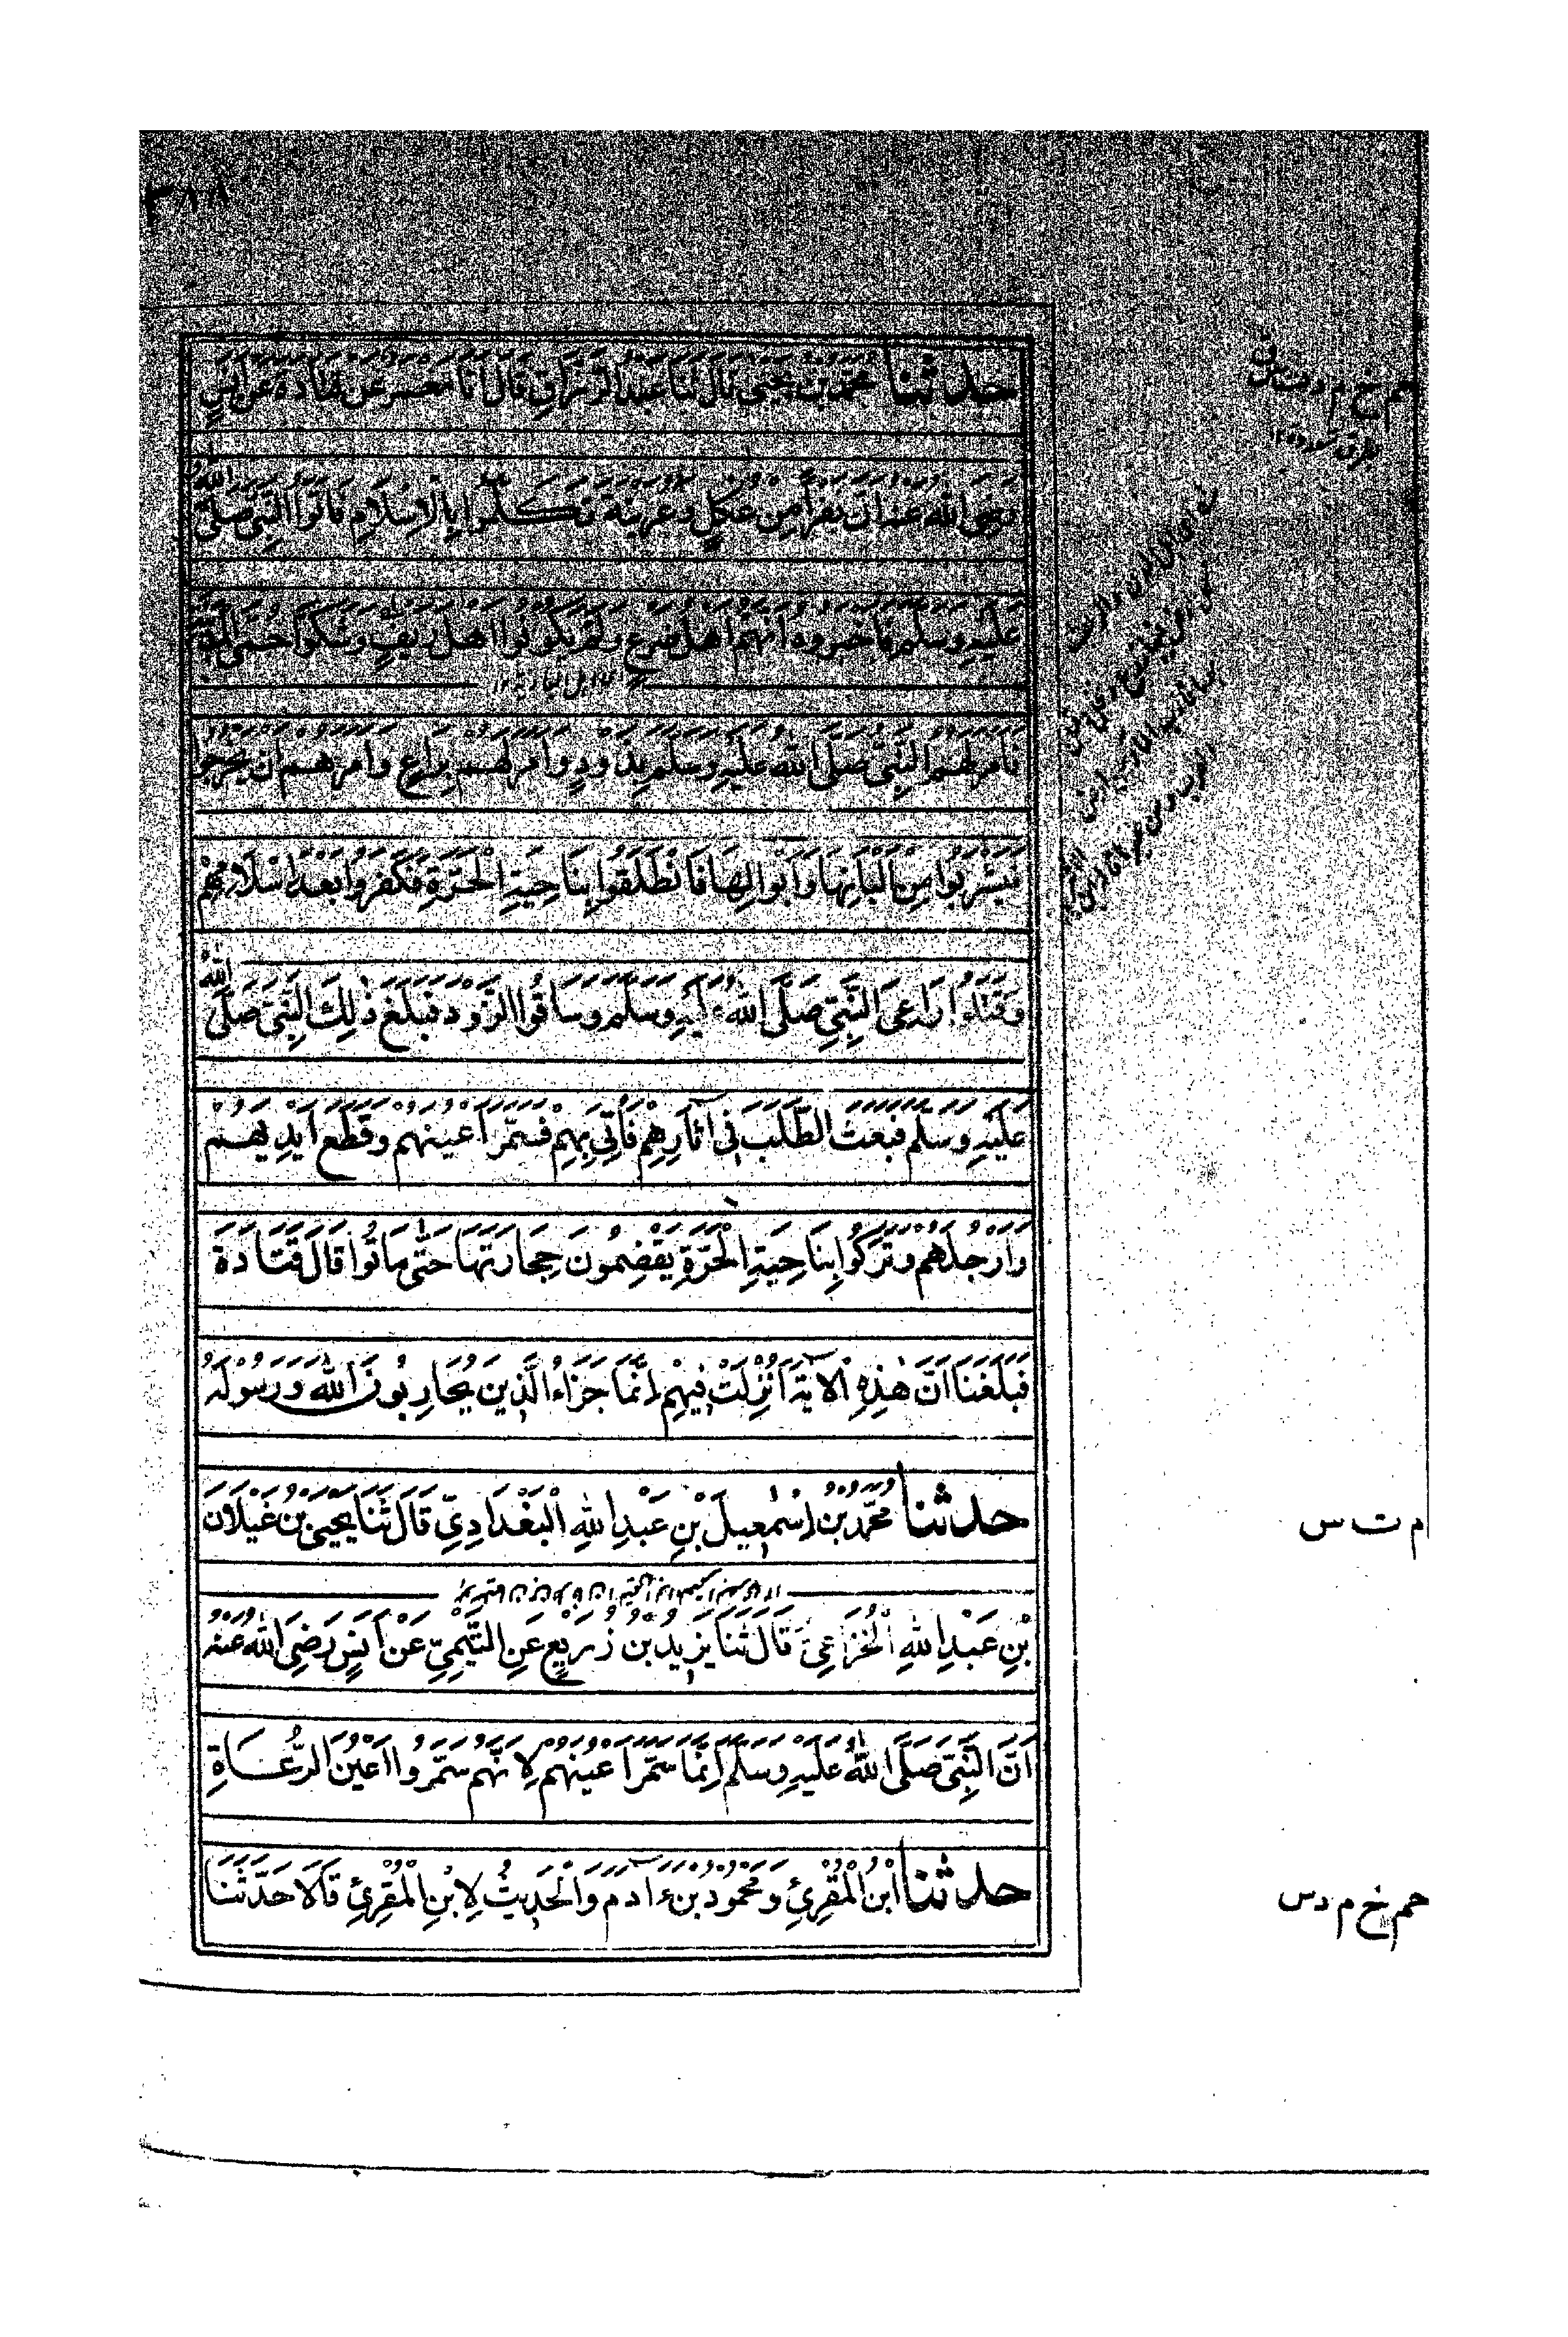 حدثنا مُحَمَّدُ بْنُ يَحْيَى قَالَ ثَنَا عَبْدُ الرَّزَّاقِ قَالَ أَنَا مَعْمَرٌ عَنْ قَتَادَةَ عَنْ أَنَسٍ
رَضِيَ اللهُ عَنْهُ أَنَّ نَفَرًا مِنْ عُكْلٍ وَعُرَيْنَةَ تَكَلَّمُوا بِالْإِسْلَامِ فَأَتَوُا النَّبِيَّ صَلَّى اللهُ
عَلَيْهِ وَسَلَّمَ فَأَخْبَرُوهُ أَنَّهُمْ أَهْلُ ضَرْعٍ وَلَمْ يَكُونُوا أَهْلَ رِيفٍ وَشَكَوْا حُمَّى الْمَدِينَةِ
فَأَمَرَ لَهُمُ النَّبِيُّ صَلَّى اللهُ عَلَيْهِ وَسَلَّمَ بِذَوْدٍ وَأَمَرَ لَهُمْ بِرَاعٍ وَأَمَرَهُمْ أَنْ يَخْرُجُوا
فَيَشْرَبُوا مِنْ أَلْبَانِهَا وَأَبْوَالِهَا فَانْطَلَقُوا بِنَاحِيَةِ الْحَرَّةِ فَكَفَرُوا بَعْدَ إِسْلَامِهِمْ
وَقَتَلُوا رَاعِيَ النَّبِيِّ صَلَّى اللهُ عَلَيْهِ وَسَلَّمَ وَسَاقُوا الذَّوْدَ فَبَلَغَ ذٰلِكَ النَّبِيَّ صَلَّى اللهُ
عَلَيْهِ وَسَلَّمَ فَبَعَثَ الطَّلَبَ فِي آثَارِهِمْ فَأُتِيَ بِهِمْ فَسَمَّرَ أَعْيُنَهُمْ وَقَطَعَ أَيْدِيَهُمْ
وَأَرْجُلَهُمْ وَتُرِكُوا بِنَاحِيَةِ الْحَرَّةِ يَقْضِمُونَ حِجَارَتَهَا حَتّٰى مَاتُوا قَالَ قَتَادَةُ
فَبَلَغَنَا أَنَّ هٰذِهِ الْآيَةَ أُنْزِلَتْ فِيهِمْ إِنَّمَا جَزَاءُ الَّذِينَ يُحَارِبُونَ اللهَ وَرَسُولَهُ
حدثنا مُحَمَّدُ بْنُ إِسْمٰعِيلَ بْنِ عَبْدِ اللهِ الْبَغْدَادِيُّ قَالَ ثَنَا يَحْيَى بْنُ غَيْلَانَ
م ت س
بْنِ عَبْدِ اللهِ الْخُزَاعِيُّ قَالَ ثَنَا يَزِيدُ بْنُ زُرَيْعٍ عَنِ التَّيْمِيِّ عَنْ أَنَسٍ رَضِيَ اللهُ عَنْهُ
أَنَّ النَّبِيَّ صَلَّى اللهُ عَلَيْهِ وَسَلَّمَ إِنَّمَا سَمَّرَ أَعْيُنَهُمْ لِأَنَّهُمْ سَمَّرُوا أَعْيُنَ الرُّعَاةِ
حدثنا ابْنُ الْمُقْرِئِ وَمَحْمُودُ بْنُ آدَمَ وَالْحَدِيثُ لِابْنِ الْمُقْرِئِ قَالَا حَدَّثَنَا
حم خ م د س